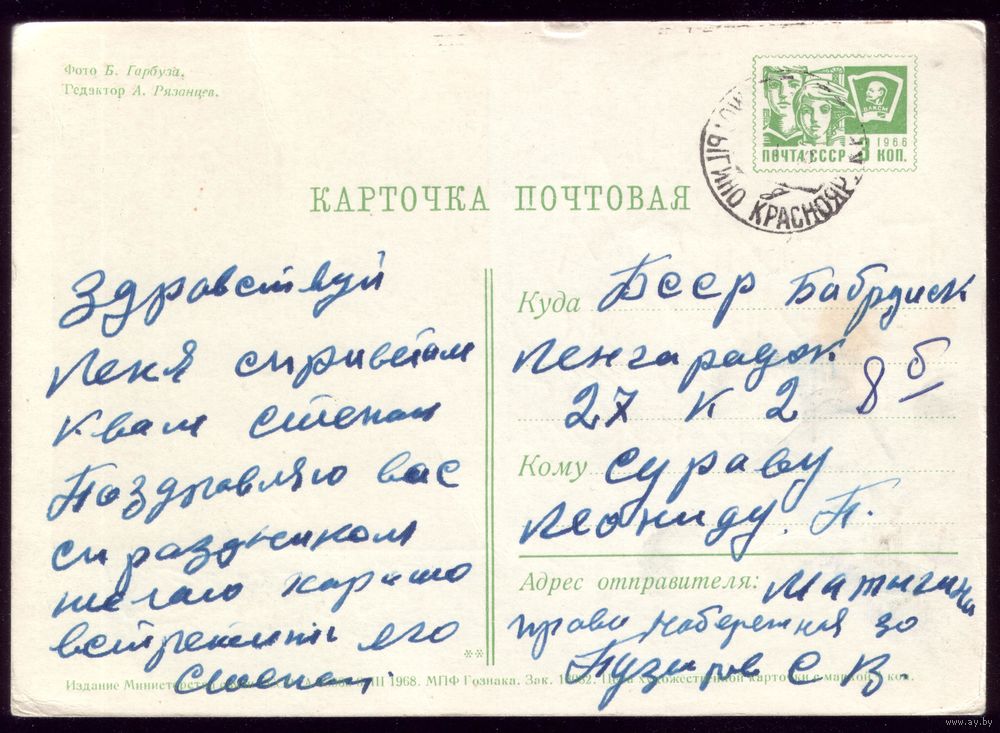 Фото Б. Гарбуза.
Редактор А. Рязанцев.
1966
ПОЧТА СССР 3 КОП.
ВЛКСМ
МОТЫГИНО КРАСНОЯР. КР
КАРТОЧКА ПОЧТОВАЯ
Здравствуй
Леня сприветом
Квам степан
Поздровляю вас
спраздником
желаю харошо
встретить его
степан.
Куда Бсср Бабруиск
Ленгарадок
27 к 2 8 б
Кому Сураву
Леониду. П.
Адрес отправителя: Матыгина
права набережная 30
Пузыров С В
**
Издание Министерства 1968. МПФ Гознака. Зак. Цена художественной карточки с маркой коп.
www.ay.by